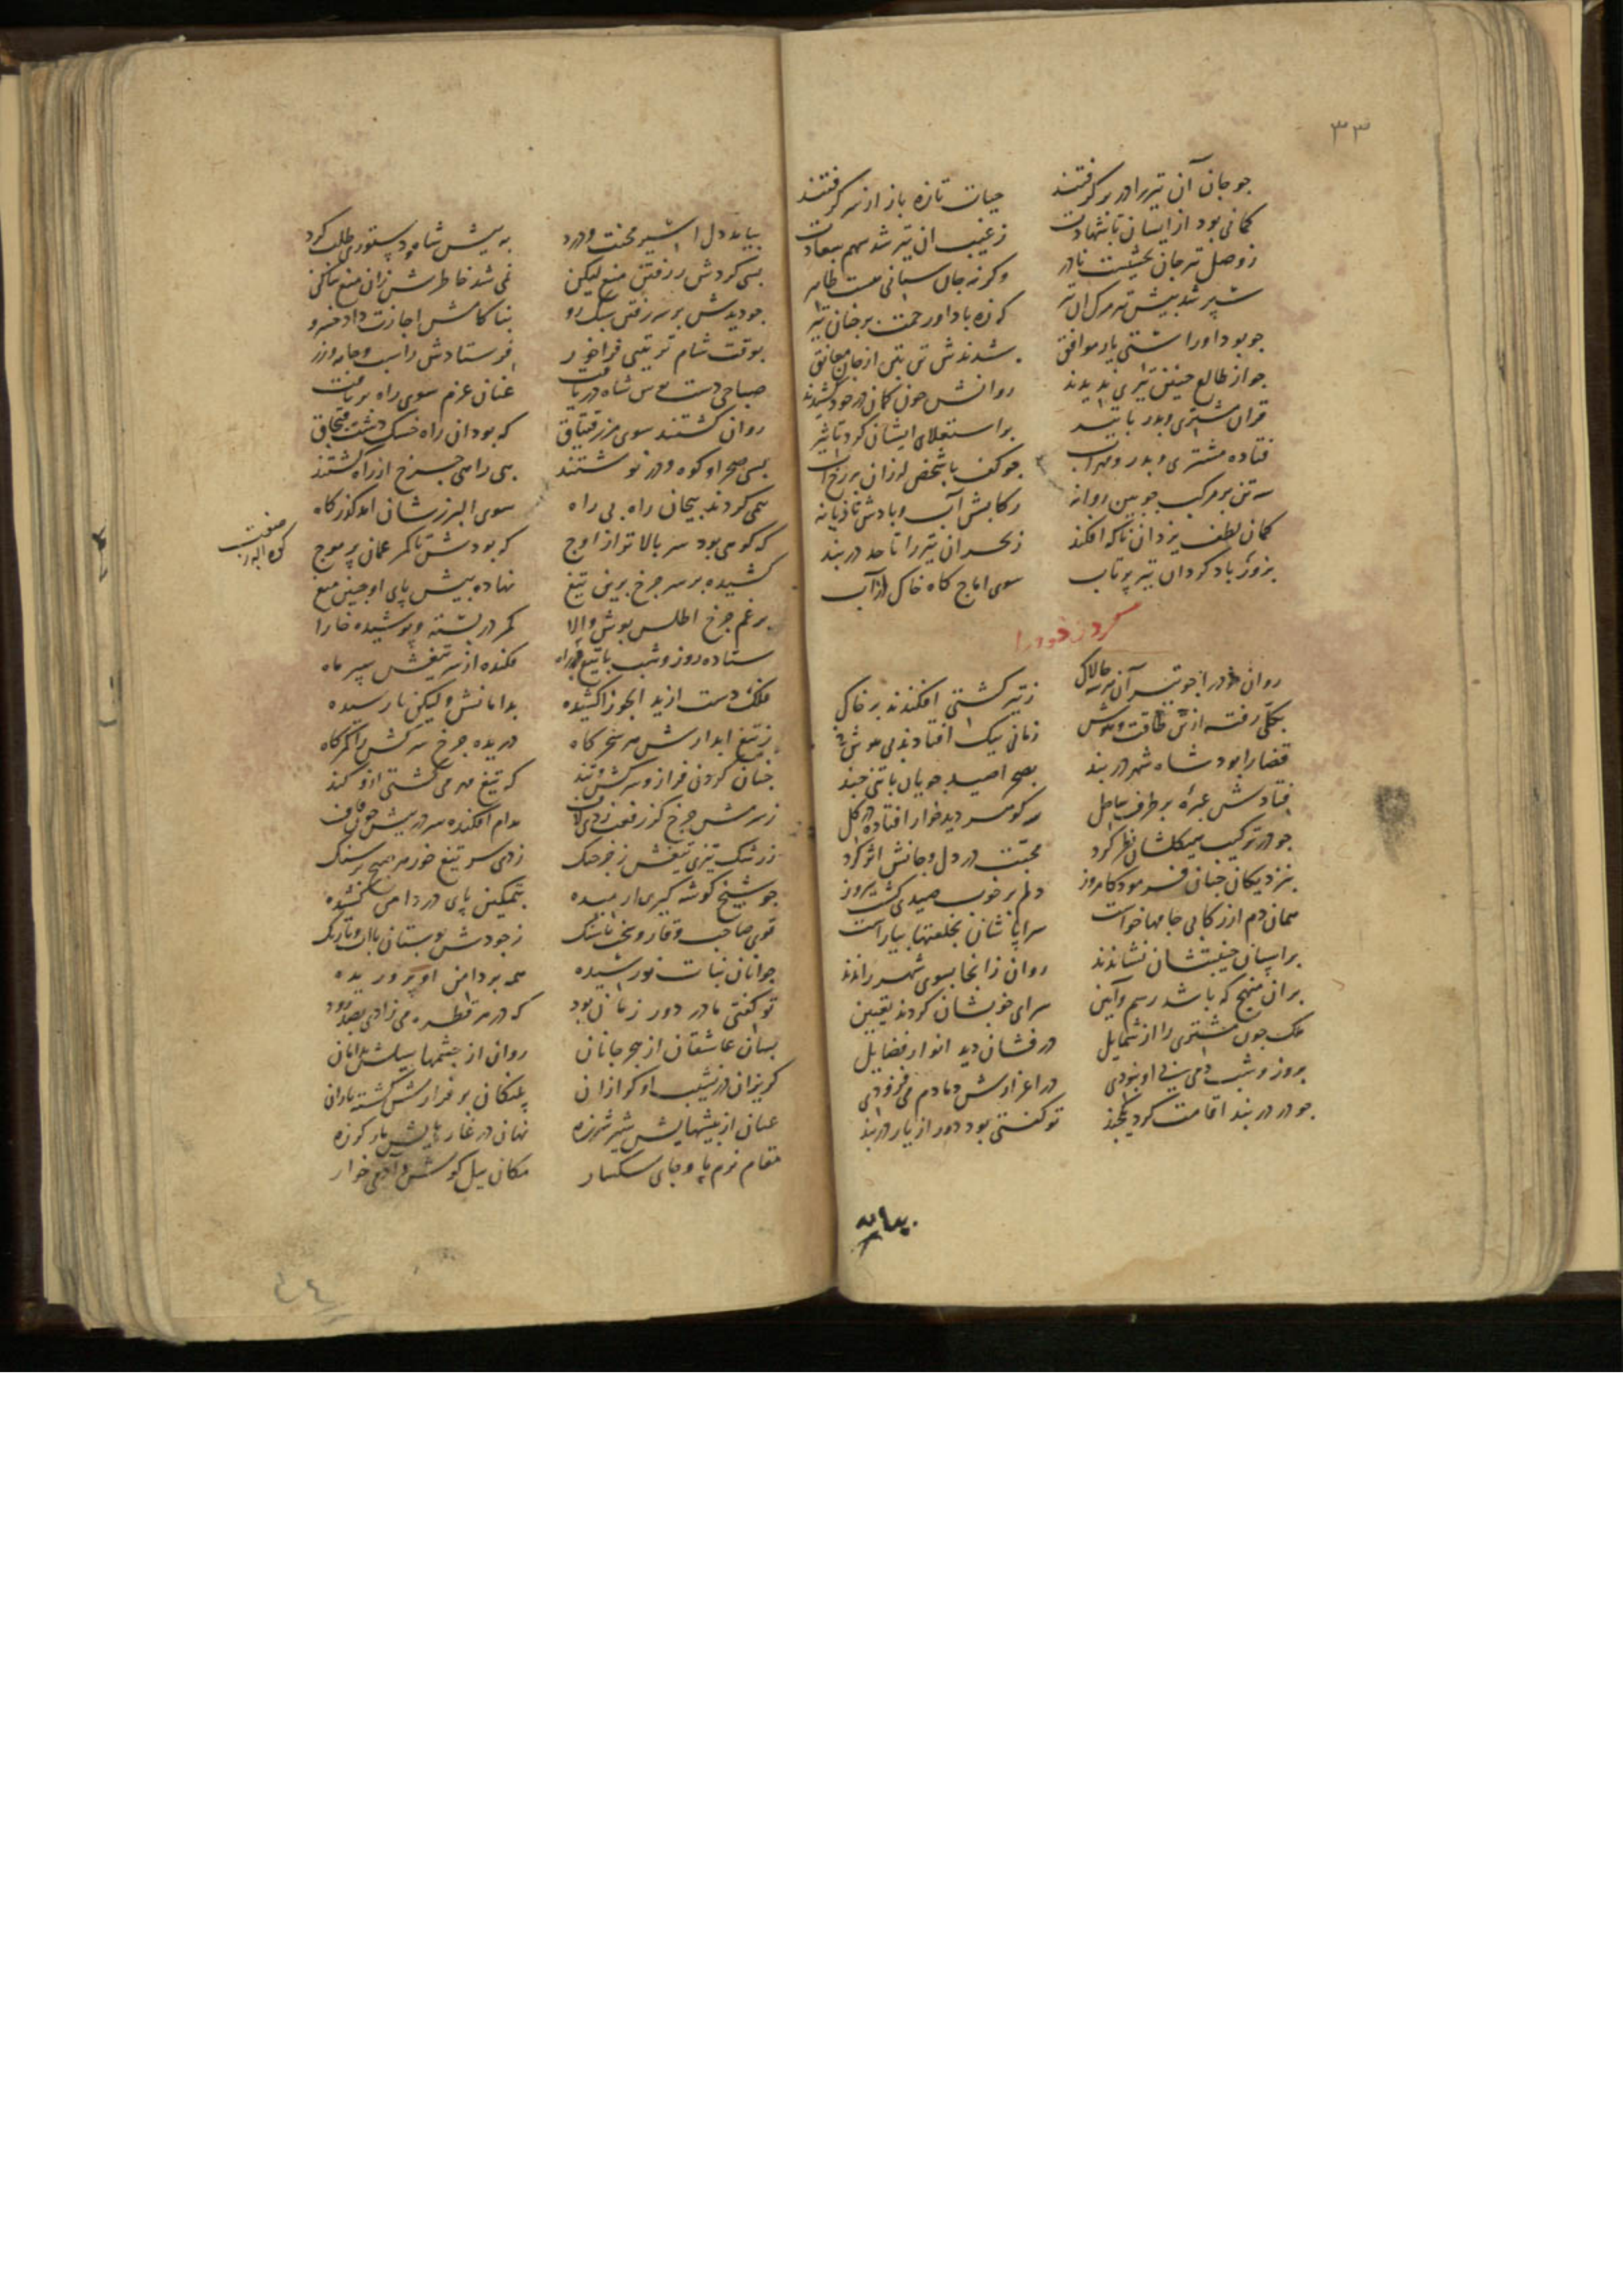 ۳۳
جو جان آن تیر را در بر کرفتند حیات تازه باز از سر کرفتند
کمانی بود از ایشان تا شهادت ز غیب ان تیر شد سهم سعادت
ز وصل تیر جان بخشیست نادر وکرنه جان ستانی هست ظاهر
سپر شد پیش تیر مرک ان تیر که زه باد اور رحمت بر چنان تیر
جو بود او راستی یار موافق شدندش تن بتن از جان معانق
جو از طالع جنین تیری بدیدند روانش جون کمان در خود کشیدند
قران مشتری و بدر با تیر بر استعلای ایشان کرد تاثیر
فتاده مشتری و بدر و مهراب جو کف با شخص لرزان بر رخ آب
سه تن بر مرکب جوبین روانه رکابش آب و بادش تازیانه
کمان لطف یزدان ناکه افکند ز بحر ان تیر را تا حد دربند
بزور باد کردان تیر پرتاب سوی اماج کاه خاک از آب
خود را
روان خود را جو تیر آن هر سه جالاک ز تیر کشتی افکندند بر خاک
بکلی رفته از تن طاقت و هوش زمانی نیک افتادند بی هوش
قضا را بود شاه شهر دربند بصحرا صید جویان با تنی چند
فتادش عبره بر طرف ساحل سه کوهر دید خوار افتاده در کل
جو در ترکیب هیکلشان نظر کرد محبت در دل و جانش اثر کرد
بنزدیکان جنان فرمود کامروز دلم بر خوب صیدی کشت پیروز
همان دم از رکابی جامها خواست سراپاشان بخلعتها بیاراست
بر اسپان جنیبتشان نشاندند روان زانجا بسوی شهر راندند
بران منهج که باشد رسم و آیین سرای خوبشان کردند تعیین
ملک جون مشتری را از شمایل درفشان دید انوار فضایل
بروز و شب دمی بی او نبودی در اعزازش دمادم می فزودی
جو در دربند اقامت کرد یکچند تو کفتی بود دور از یار در بند
بیامد
بیامد دل اسیر محنت و درد به پیش شاه و دستوری طلب کرد
بسی کردش ز رفتن منع لیکن نمی شد خاطرش زان منع ساکن
جو دیدش بر سر رفتن سبک رو بناکامش اجازت داد خسرو
بوقت شام ترتیبی فراخور فرستادش ز اسب و جامه و زر
صباحی دست بوس شاه دریافت عنان عزم سوی راه بر تافت
روان کشتند سوی مرز قبچاق که بود ان راه خشک دشت قبچاق
بسی صحرا و کوه و در نوشتند بهی راهی جرخ از راه کشتند
همی کردند پیجان راه بی راه سوی البرز شان امد کذرکاه
که کوهی بود سر بالاتر از اوج که بودش تا کمر عمان پر موج
کشیده بر سر جرخ برین تیغ نهاده پیش پای او جبین میغ
برغم جرخ اطلس پوش والا کمر در بسته و پوشیده خارا
ستاده روز و شب با تیغ در راه فکنده از سر تیغش سپر ماه
فلک دست از ید الجوزا کشیده بدامانش ولیکن نارسیده
ز تیغ ابدارش هر سحرکاه دریده جرخ سرکش را کمرکاه
جنان کردن فراز و سرکش و تند که تیغ مهر می کشتی ازو کند
ز سرمش جرخ کز رفعت زدی لاف مدام افکنده سر در پیش جون قاف
ز رشک تیزی تیغش ز فرسنک زدی سر تیغ خور هر صبح بر سنک
جو شیخ کوشه کیری ارمیده بتمکین پای در دامن کشیده
قوی صاحب وقار و سخت با سنک ز جودش بوستان با آب و با رنک
جوانان نبات نورسیده همه بر دامن او پروریده
تو کفتی مادر دور زمان بود که در هر قطره می زادی بصد رود
بسان عاشقان از هجر جانان روان از چشمها سیلش بدامان
کریزان در نشیب او کرازان پلنکان بر فرازش کشته یازان
عیان از بیشهایش شیر شرزه نهان در غارهایش مار کرزه
مقام نرم پا و جای سکسار مکان پیل کوش و آدمی خوار
صفت
کوه البرز